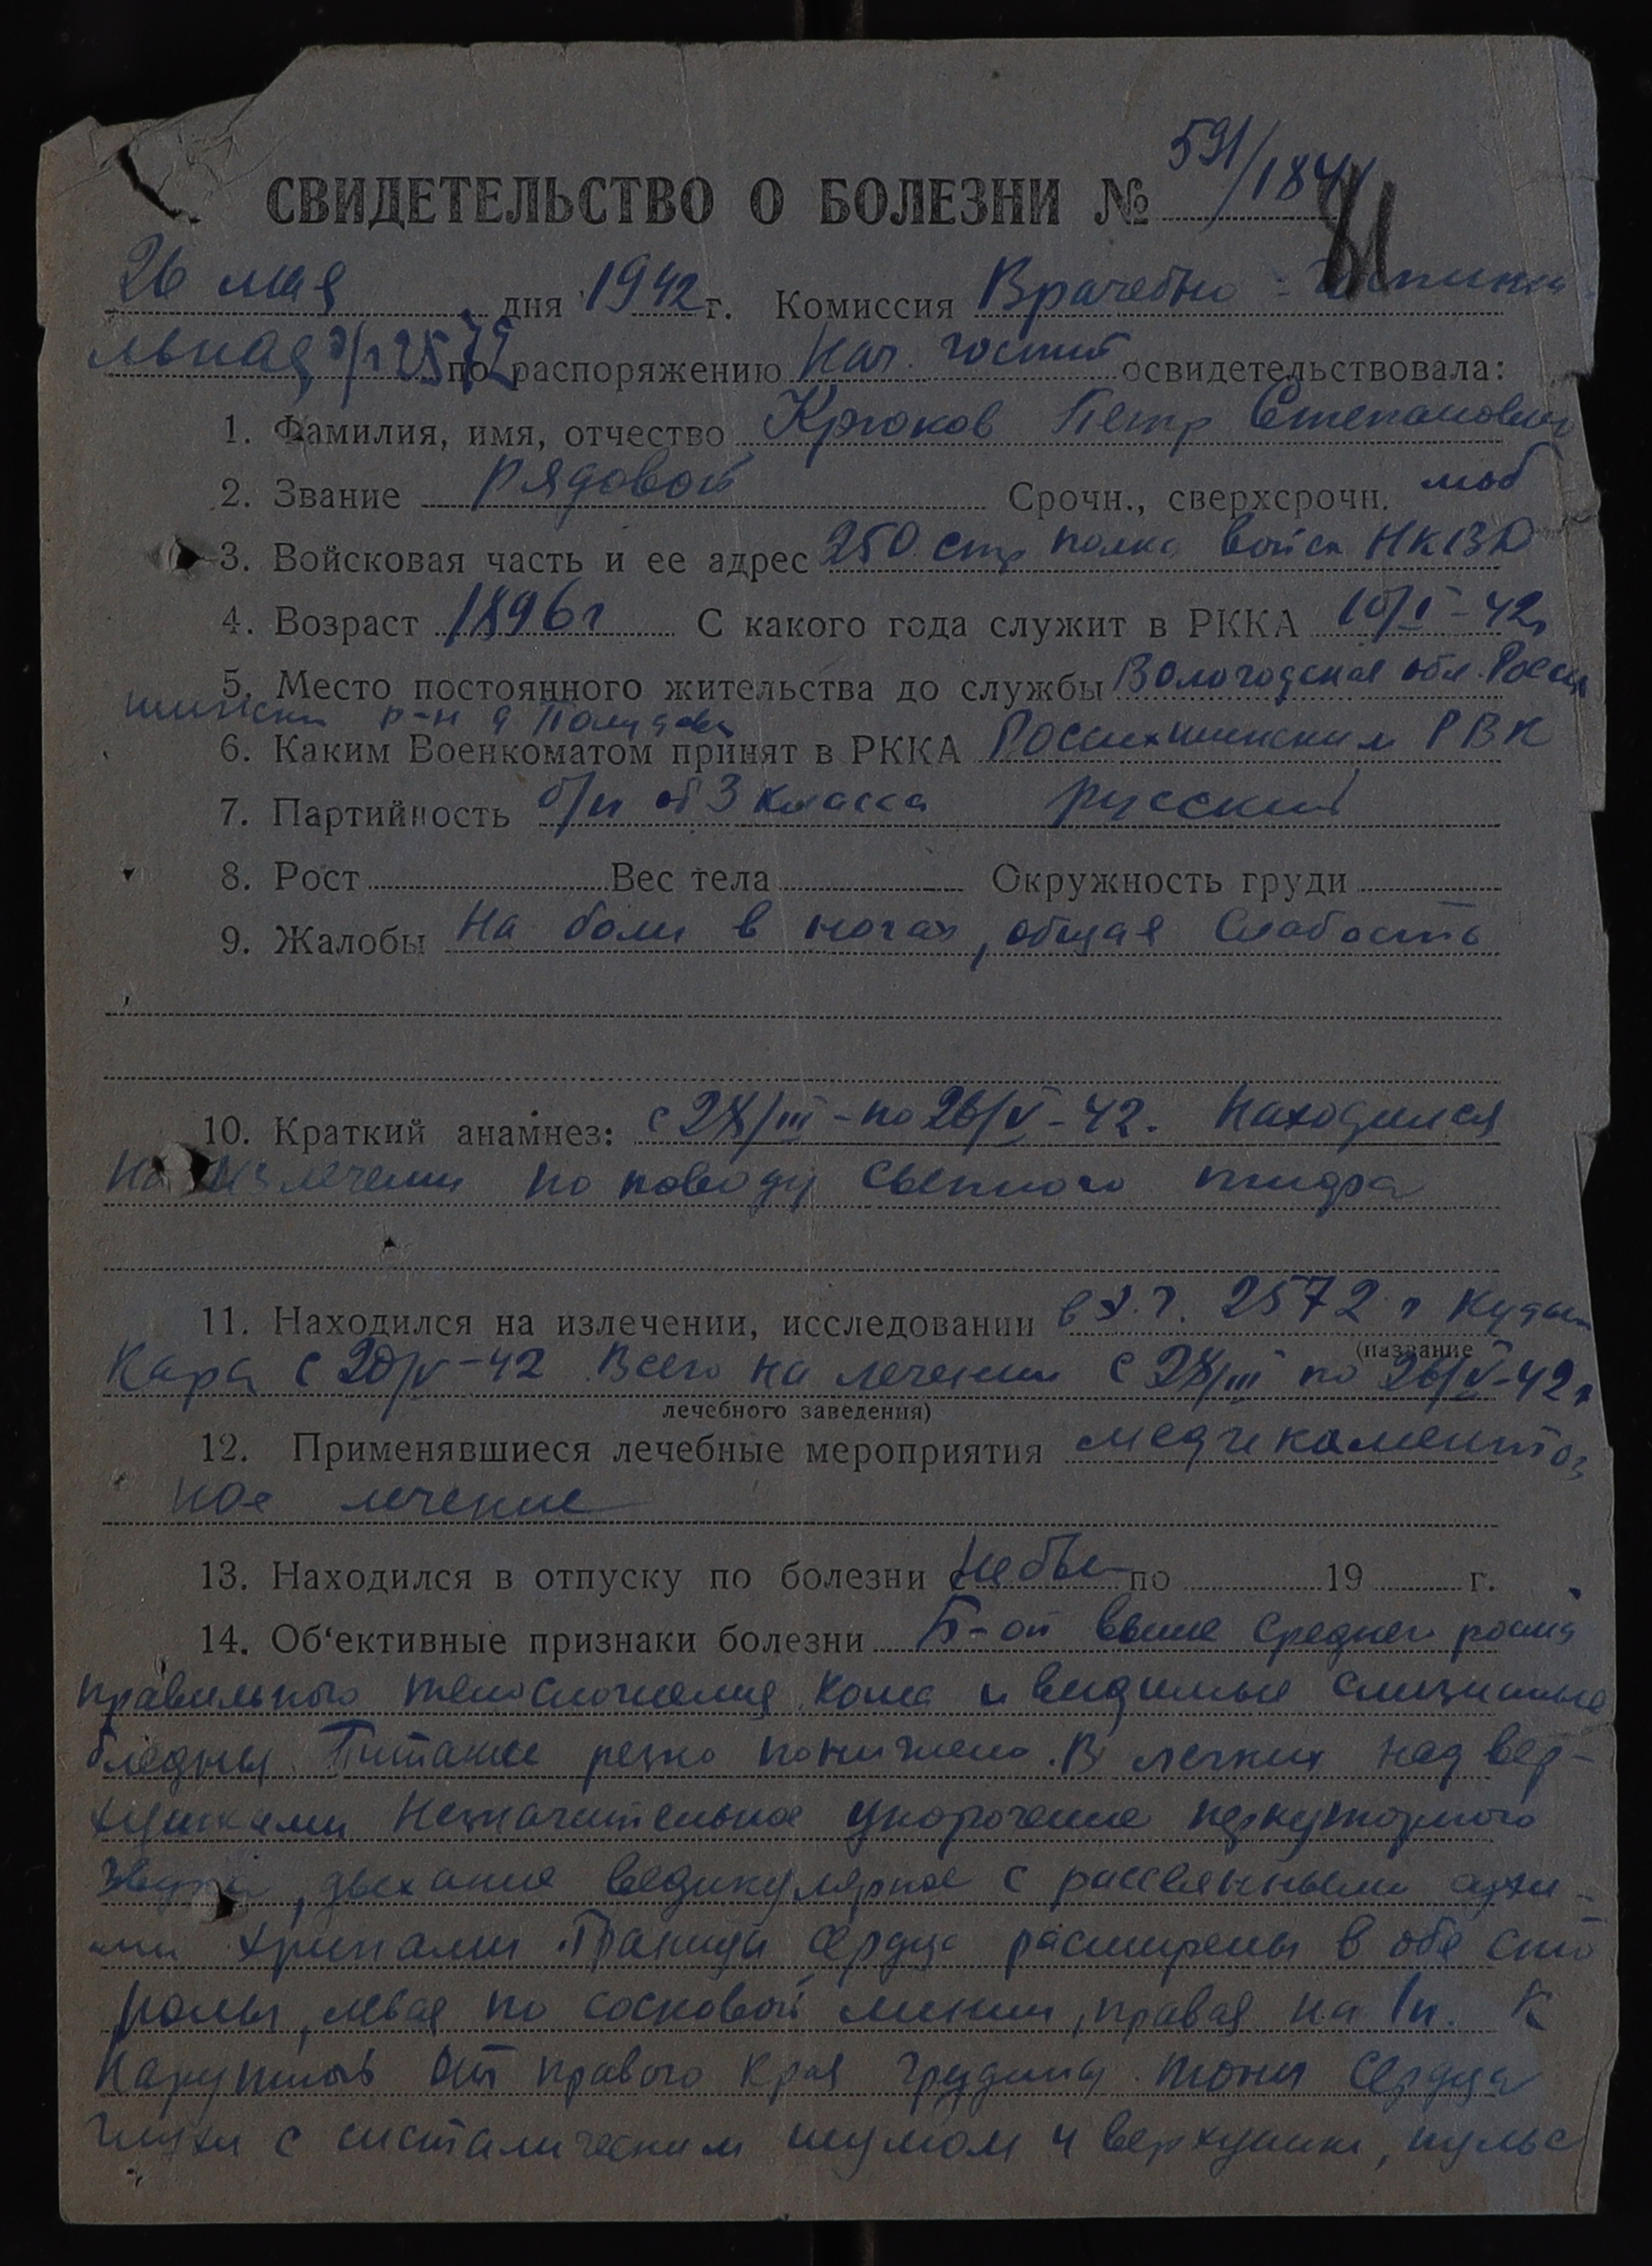 СВИДЕТЕЛЬСТВО О БОЛЕЗНИ № 591/1841
81
26 мая дня 1942 г. Комиссия Врачебно-госпита
льная э/г 2572 по распоряжению Нач. госпит освидетельствовала:
1. Фамилия, имя, отчество Крюков Петр Степанович
2. Звание рядовой Срочн., сверхсрочн. моб
3. Войсковая часть и ее адрес 250 стр полка войск НКВД
4. Возраст 1896 г С какого года служит в РККА 10/I-42г
5. Место постоянного жительства до службы Вологодская обл.
р-н д
6. Каким Военкоматом принят в РККА РВК
7. Партийность б/п об 3 класса русский
8. Рост Вес тела Окружность груди
9. Жалобы На боли в ногах, общая слабость
10. Краткий анамнез: с 28/III-по 26/V-42. Находился
на излечении по поводу сыпного тифа
11. Находился на излечении, исследовании в э.г. 2572 г Кудым
(название
кара с 20/V-42 Всего на лечении с 28/III по 26/V-42г
лечебного заведения)
12. Применявшиеся лечебные мероприятия медикаментоз
ное лечение
13. Находился в отпуску по болезни с не был по 19 г.
14. Об'ективные признаки болезни Б-ой выше среднего роста
правильного телосложения. Кожа и видимые слизистые
бледны. Питание резко понижено. В легких над вер-
хушками незначительное укорочение перкуторного
звука, дыхание везикулярное с рассеянными сухи-
ми хрипами. Границы сердца расширены в обе сто
роны, левая по сосковой линии, правая на 1п. К
наружи от правого края грудины. Тоны сердца
глухи с систалическим шумом у верхушки, пульс